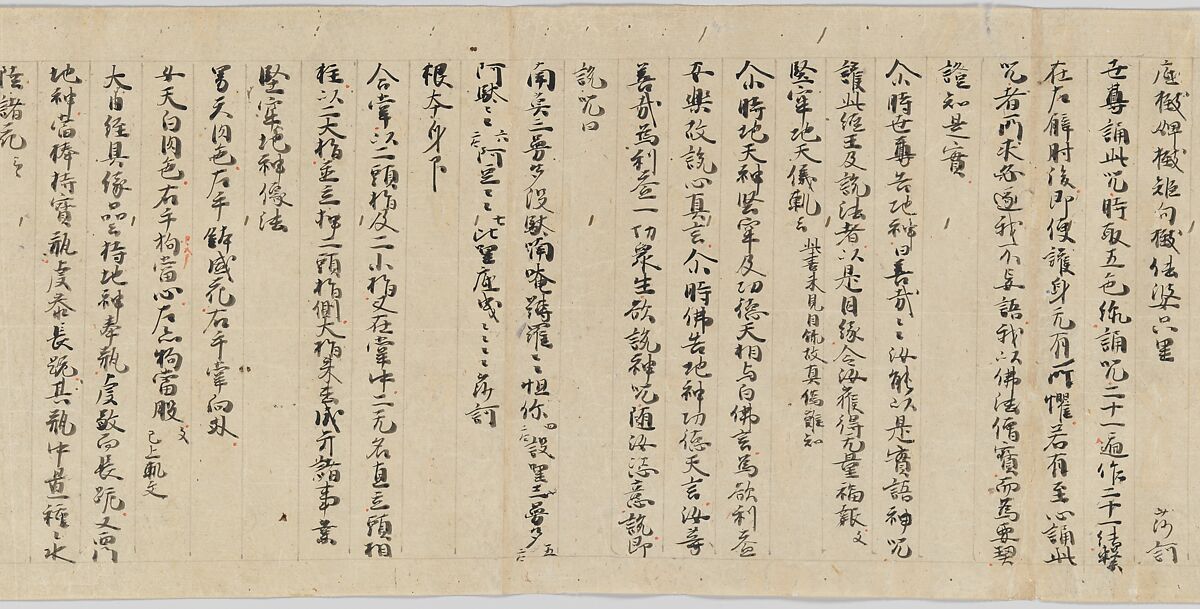 底檝婢檝矩句檝佉婆只里 莎訶
世尊誦此呪時取五色線誦呪二十一遍作二十一結繫
在左臂肘後即便護身无有所懼若有至心誦此
呪者所求必遂我不妄語我以佛法僧寶而為要契
證知是實
尒時世尊告地神曰善哉々々汝能以是實語神呪
護此經王及說法者以是因緣令汝獲得无量福報文
堅牢地天儀軌云 此書未見目錄故真偽難知
尒時地天神堅牢及功德天相与白佛言為欲利益
安樂故說心真言尒時佛告地神功德天言汝等
善哉為利益一切衆生欲說神呪随汝恣意說即
說呪曰
南莫三曼多没駄喃唵蹲羅々々怛你四設里曼多五
阿駄々々六阿芝々々七比里底曳々々々莎訶
根本身印
合掌以二頭指及二小指叉在掌中二无名直立頭相
柱以二大指並立押二頭指側大指来去成弁諸事業
堅牢地神像法
男天肉色左手鉢盛花右手掌向外
女天白肉色右手抱當心左亦抱當股文 已上軌文
大日經具緣品云持地神奉瓶虔敬而長跪文
地神當捧持寶瓶虔恭長跪其瓶中置種々水
陸諸花々